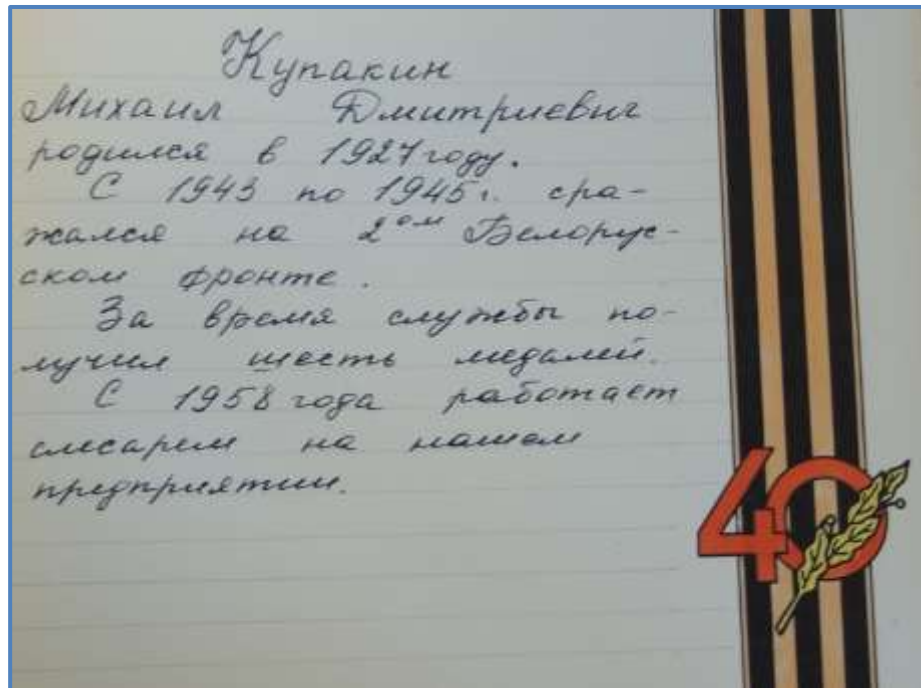 Купакин
Михаил Дмитриевич
родился в 1927 году.
С 1943 по 1945 г. сра-
жался на 2ом Белорус-
ском фронте.
За время службы по-
лучил шесть медалей.
С 1958 года работает
слесарем на нашем
предприятии.
40